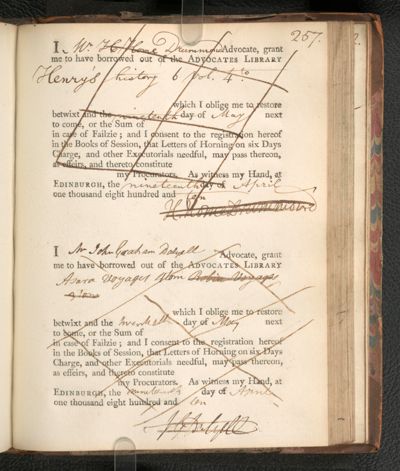 257.
I Mr. H Home Drummond Advocate, grant
me to have borrowed out of the ADVOCATES LIBRARY
Henry's history 6 vol. 4to
which I oblige me to restore
betwixt and the nineteenth day of May next
to come, or the Sum of
in case of Failzie ; and I consent to the registration hereof
in the Books of Session, that Letters of Horning on six Days
Charge, and other Executorials needful, may pass thereon,
as effeirs, and thereto constitute
my Procurators. As witness my Hand, at
EDINBURGH, the nineteenth day of April
one thousand eight hundred and ten
H Home Drummond
I Mr John Graham Dalyell Advocate, grant
me to have borrowed out of the ADVOCATES LIBRARY
Azara Voyages 4tom Voyages
which I oblige me to restore
betwixt and the day of May next
to come, or the Sum of
in case of Failzie ; and I consent to the registration hereof
in the Books of Session, that Letters of Horning on six Days
Charge, and other Executorials needful, may pass thereon,
as effeirs, and thereto constitute
my Procurators. As witness my Hand, at
EDINBURGH, the day of April
one thousand eight hundred and ten